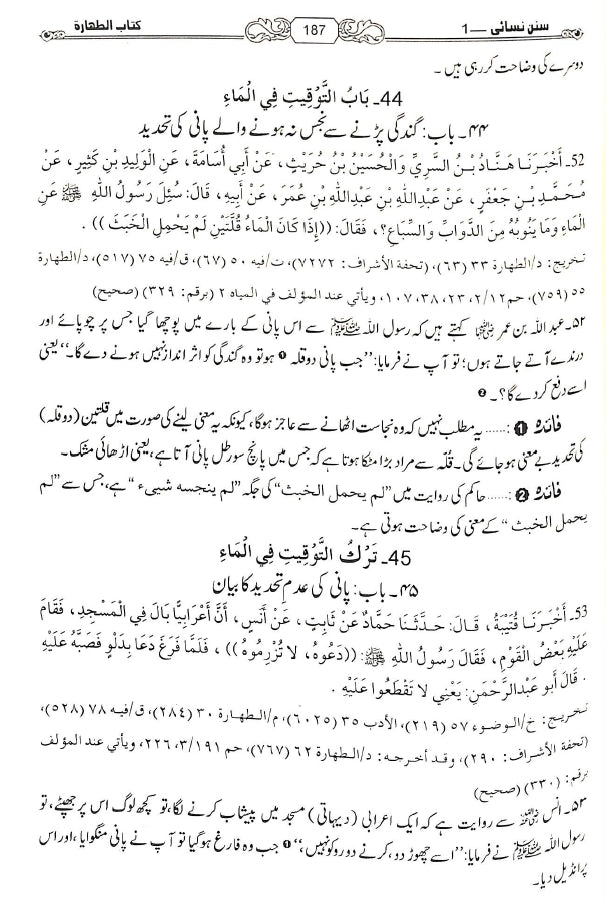 سنن نسائی ــ 1
187
کتاب الطهارة
دوسرے کی وضاحت کر رہی ہیں ۔
44۔ بَابُ التَّوْقِيتِ فِي الْمَاءِ
۴۴۔ باب: گندگی پڑنے سے نجس نہ ہونے والے پانی کی تحدید
52۔ أَخْبَرَنَا هَنَّادُ بْنُ السَّرِيِّ وَالْحُسَيْنُ بْنُ حُرَيْثٍ، عَنْ أَبِي أُسَامَةَ، عَنِ الْوَلِيدِ بْنِ كَثِيرٍ، عَنْ
مُحَمَّدِ بْنِ جَعْفَرٍ، عَنْ عَبْدِاللَّهِ بْنِ عَبْدِاللَّهِ بْنِ عُمَرَ، عَنْ أَبِيهِ، قَالَ: سُئِلَ رَسُولُ اللَّهِ ﷺ عَنِ
الْمَاءِ وَمَا يَنُوبُهُ مِنَ الدَّوَابِّ وَالسِّبَاعِ؟، فَقَالَ: ((إِذَا كَانَ الْمَاءُ قُلَّتَيْنِ لَمْ يَحْمِلِ الْخَبَثَ)) .
تخريج: د/الطهارة ۳۳ (۶۳)، (تحفة الأشراف: ۷۲۷۲)، ت/فيه ۵۰ (۶۷)، ق/فيه ۷۵ (۵۱۷)، د/الطهارة
۵۵ (۷۵۹)، حم ۲/۱۲، ۲۳، ۳۸، ۱۰۷، ويأتي عند المؤلف في المياه ۲ (برقم: ۳۲۹) (صحيح)
۵۲۔ عبداللہ بن عمر رضی اللہ عنہما کہتے ہیں کہ رسول اللہ ﷺ سے اس پانی کے بارے میں پوچھا گیا جس پر چوپائے اور
درندے آتے جاتے ہوں؛ تو آپ نے فرمایا: ”جب پانی دو قلہ ❶ ہو تو وہ گندگی کو اثر انداز نہیں ہونے دے گا۔“ یعنی
اسے دفع کر دے گا؟ ۔ ❷
فائدہ ❶ :...... یہ مطلب نہیں کہ وہ نجاست اٹھانے سے عاجز ہوگا، کیونکہ یہ معنی لینے کی صورت میں قلتین (دو قلہ)
کی تحدید بے معنی ہو جائے گی۔ قُلّہ سے مراد بڑا مٹکا ہوتا ہے کہ جس میں پانچ سو رطل پانی آتا ہے، یعنی اڑھائی مشک۔
فائدہ ❷ :...... حاکم کی روایت میں ”لم يحمل الخبث“ کی جگہ ”لم ينجسه شيء“ ہے، جس سے ”لم
يحمل الخبث“ کے معنی کی وضاحت ہوتی ہے۔
45۔ تَرْكُ التَّوْقِيتِ فِي الْمَاءِ
۴۵۔ باب: پانی کی عدم تحدید کا بیان
53۔ أَخْبَرَنَا قُتَيْبَةُ، قَالَ: حَدَّثَنَا حَمَّادٌ عَنْ ثَابِتٍ، عَنْ أَنَسٍ، أَنَّ أَعْرَابِيًّا بَالَ فِي الْمَسْجِدِ، فَقَامَ
عَلَيْهِ بَعْضُ الْقَوْمِ، فَقَالَ رَسُولُ اللَّهِ ﷺ: ((دَعُوهُ، لَا تُزْرِمُوهُ))، فَلَمَّا فَرَغَ دَعَا بِدَلْوٍ فَصَبَّهُ عَلَيْهِ
. قَالَ أَبو عَبْدالرَّحْمَنِ: يَعْنِي لَا تَقْطَعُوا عَلَيْهِ .
تخريج: خ/الوضوء ۵۷ (۲۱۹)، الأدب ۳۵ (۶۰۲۵)، م/الطهارة ۳۰ (۲۸۴)، ق/فيه ۷۸ (۵۲۸)،
(تحفة الأشراف: ۲۹۰)، وقد أخرجه: د/الطهارة ۶۲ (۷۶۷)، حم ۳/۱۹۱، ۲۲۶، ويأتي عند المؤلف
برقم: (۳۳۰) (صحيح)
۵۳۔ انس رضی اللہ عنہ سے روایت ہے کہ ایک اعرابی (دیہاتی) مسجد میں پیشاب کرنے لگا، تو کچھ لوگ اس پر جھپٹے، تو
رسول اللہ ﷺ نے فرمایا: ”اسے چھوڑ دو، کرنے دو روکو نہیں،“ ❶ جب وہ فارغ ہو گیا تو آپ نے پانی منگوایا، اور اس
پر انڈیل دیا۔